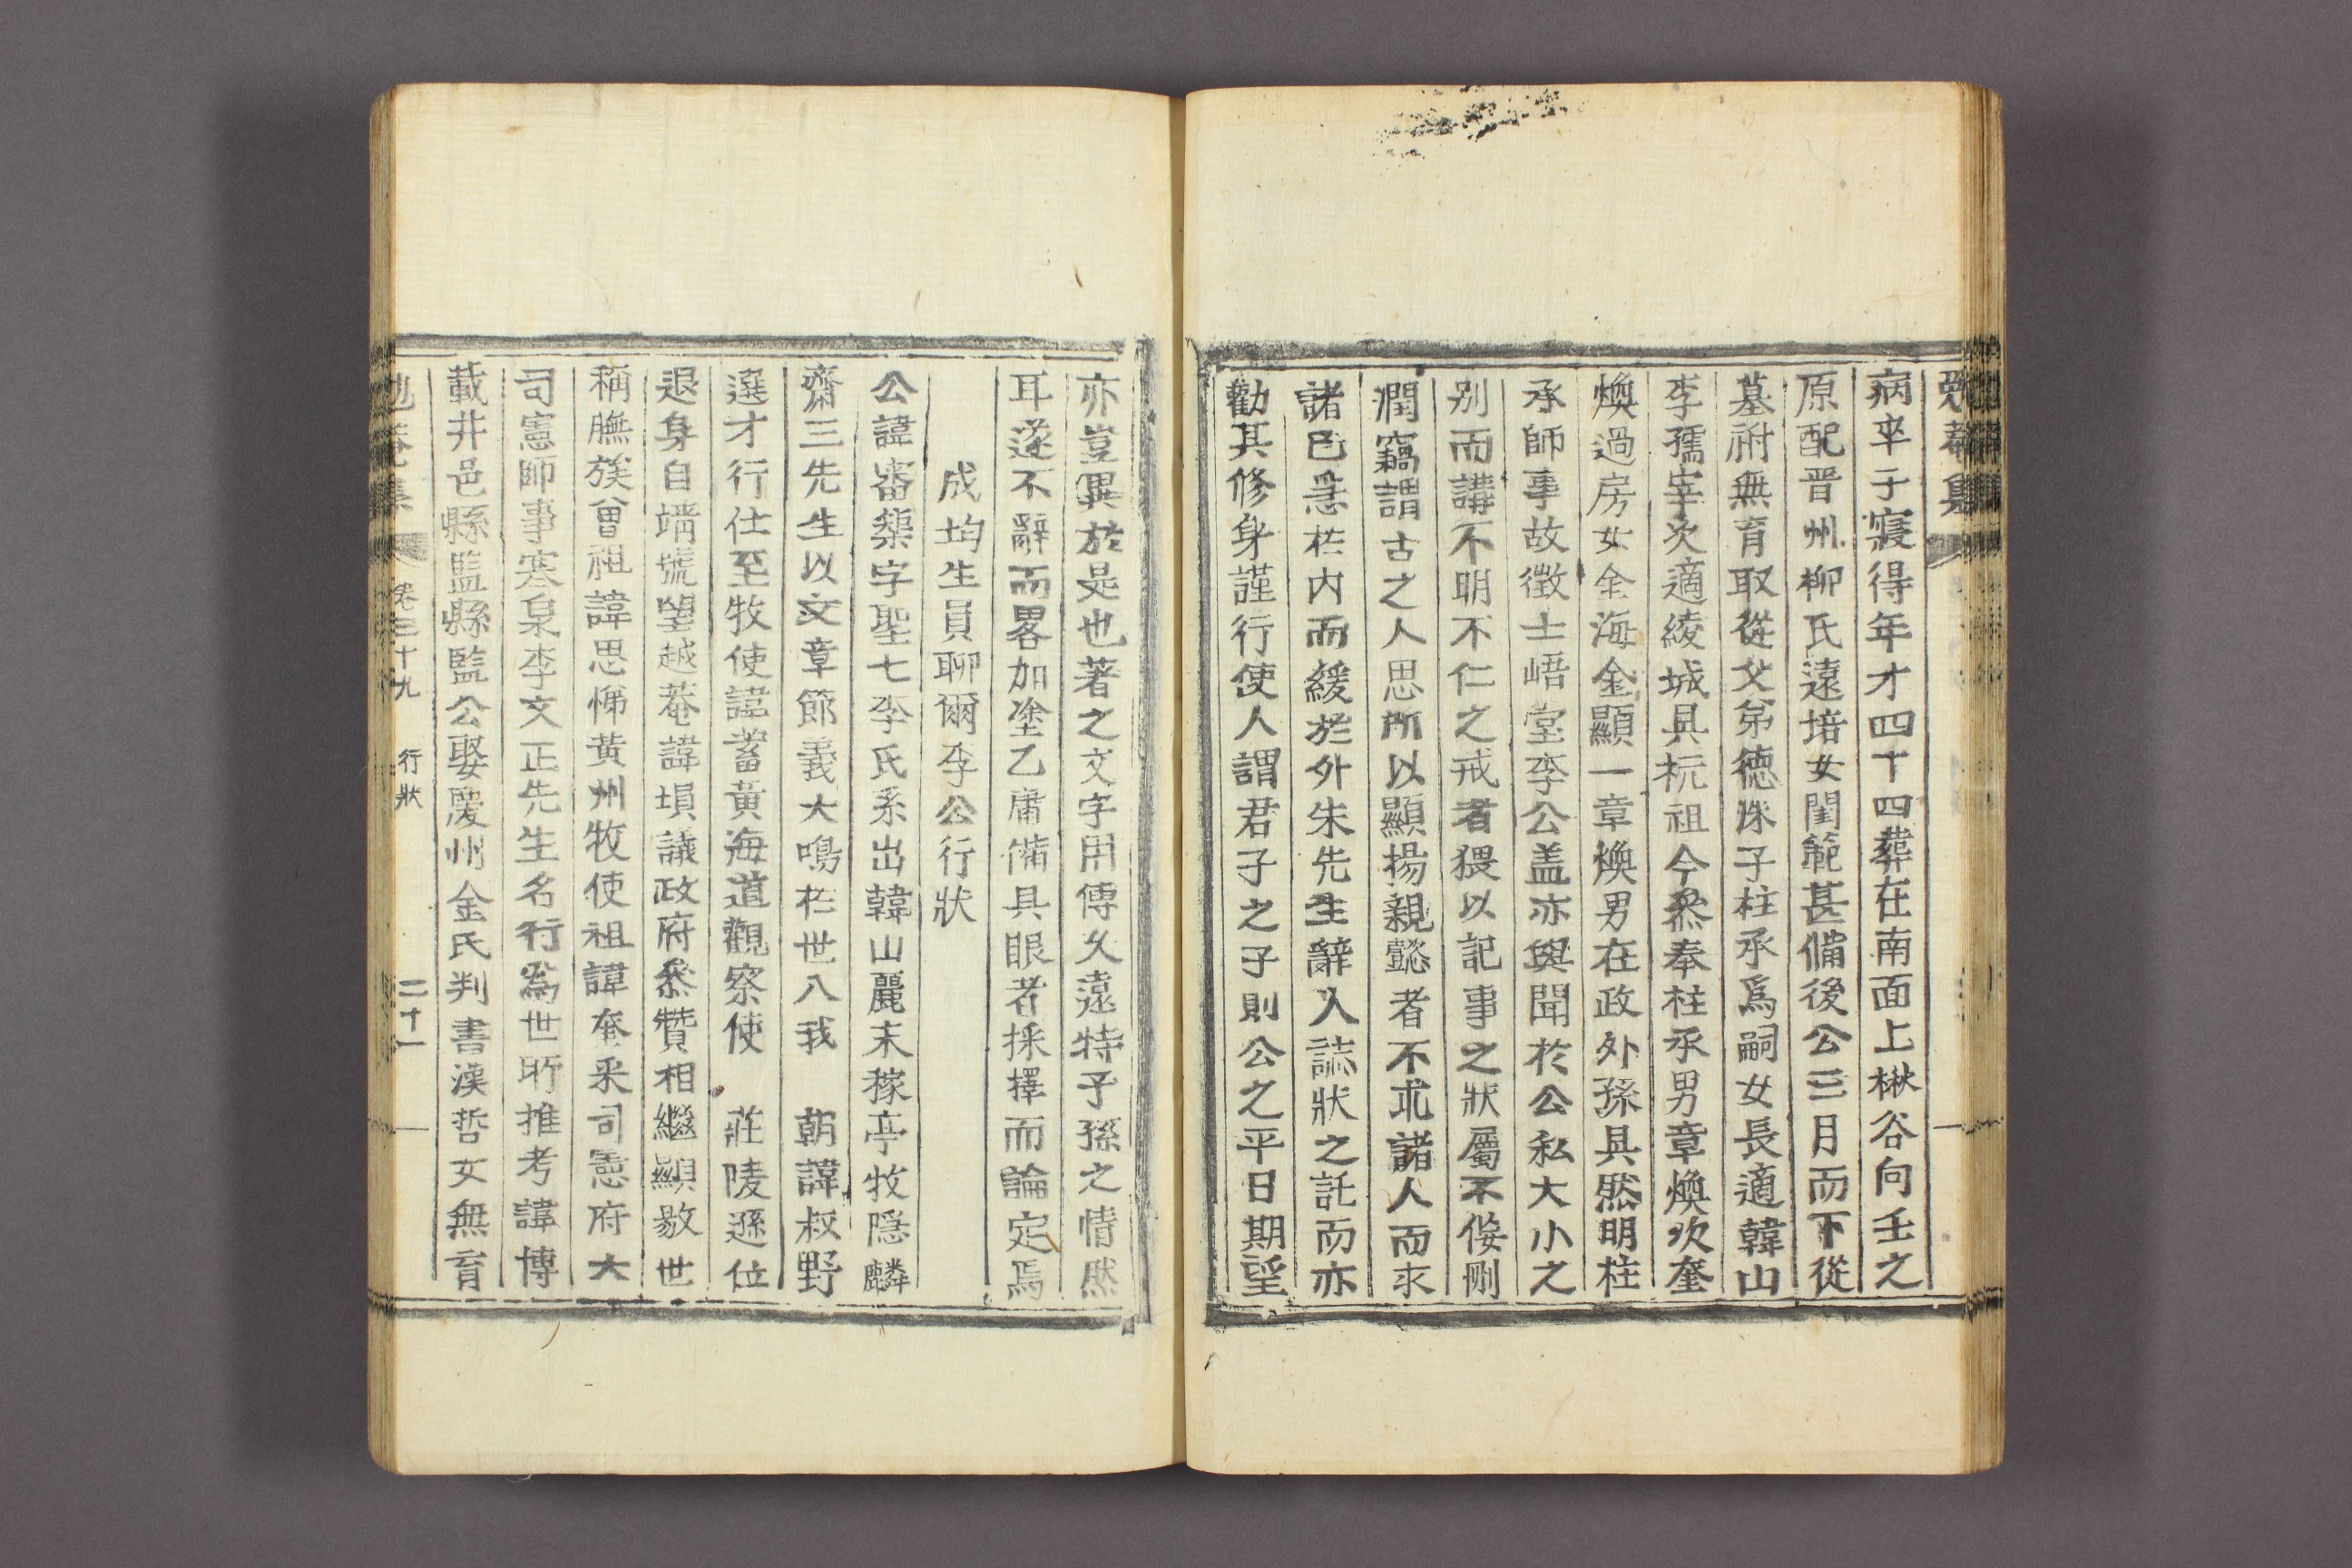 病卒于寢得年才四十四葬在南面上楸谷向壬之
原配晋州柳氏遠培女閨範甚備後公三月而下從
墓祔無育取從父弟德洙子柱承爲嗣女長適韓山
李孺宰次適綾城具杬祖今叅奉柱承男章煥次奎
煥過房女金海金顯一章煥男在政外孫具然明柱
承師事故徵士峿堂李公盖亦與聞於公私大小之
別而講不明不仁之戒者猥以記事之狀屬不佞刪
潤竊謂古之人思所以顯揚親懿者不求諸人而求
諸己急在内而緩於外朱先生辭人誌狀之託而亦
勸其修身謹行使人謂君子之子則公之平日期望
亦豈異於是也著之文字用傳久遠特子孫之情然
耳遂不辭而畧加塗乙庸備具眼者採擇而論定焉
成均生員聊爾李公行狀
公諱審榘字聖七李氏系出韓山麗末稼亭牧隱麟
齋三先生以文章節義大鳴在世入我 朝諱叔野
選才行仕至牧使諱蓄黄海道觀察使 莊陵遜位
退身自靖號望越菴諱塤議政府叅贊相繼顯敭世
稱膴族曾祖諱思悌黄州牧使祖諱奎采司憲府大
司憲師事寒泉李文正先生名行爲世所推考諱博
載井邑縣監縣監公娶慶州金氏判書漢哲女無育
卷三十九 行狀 二十一